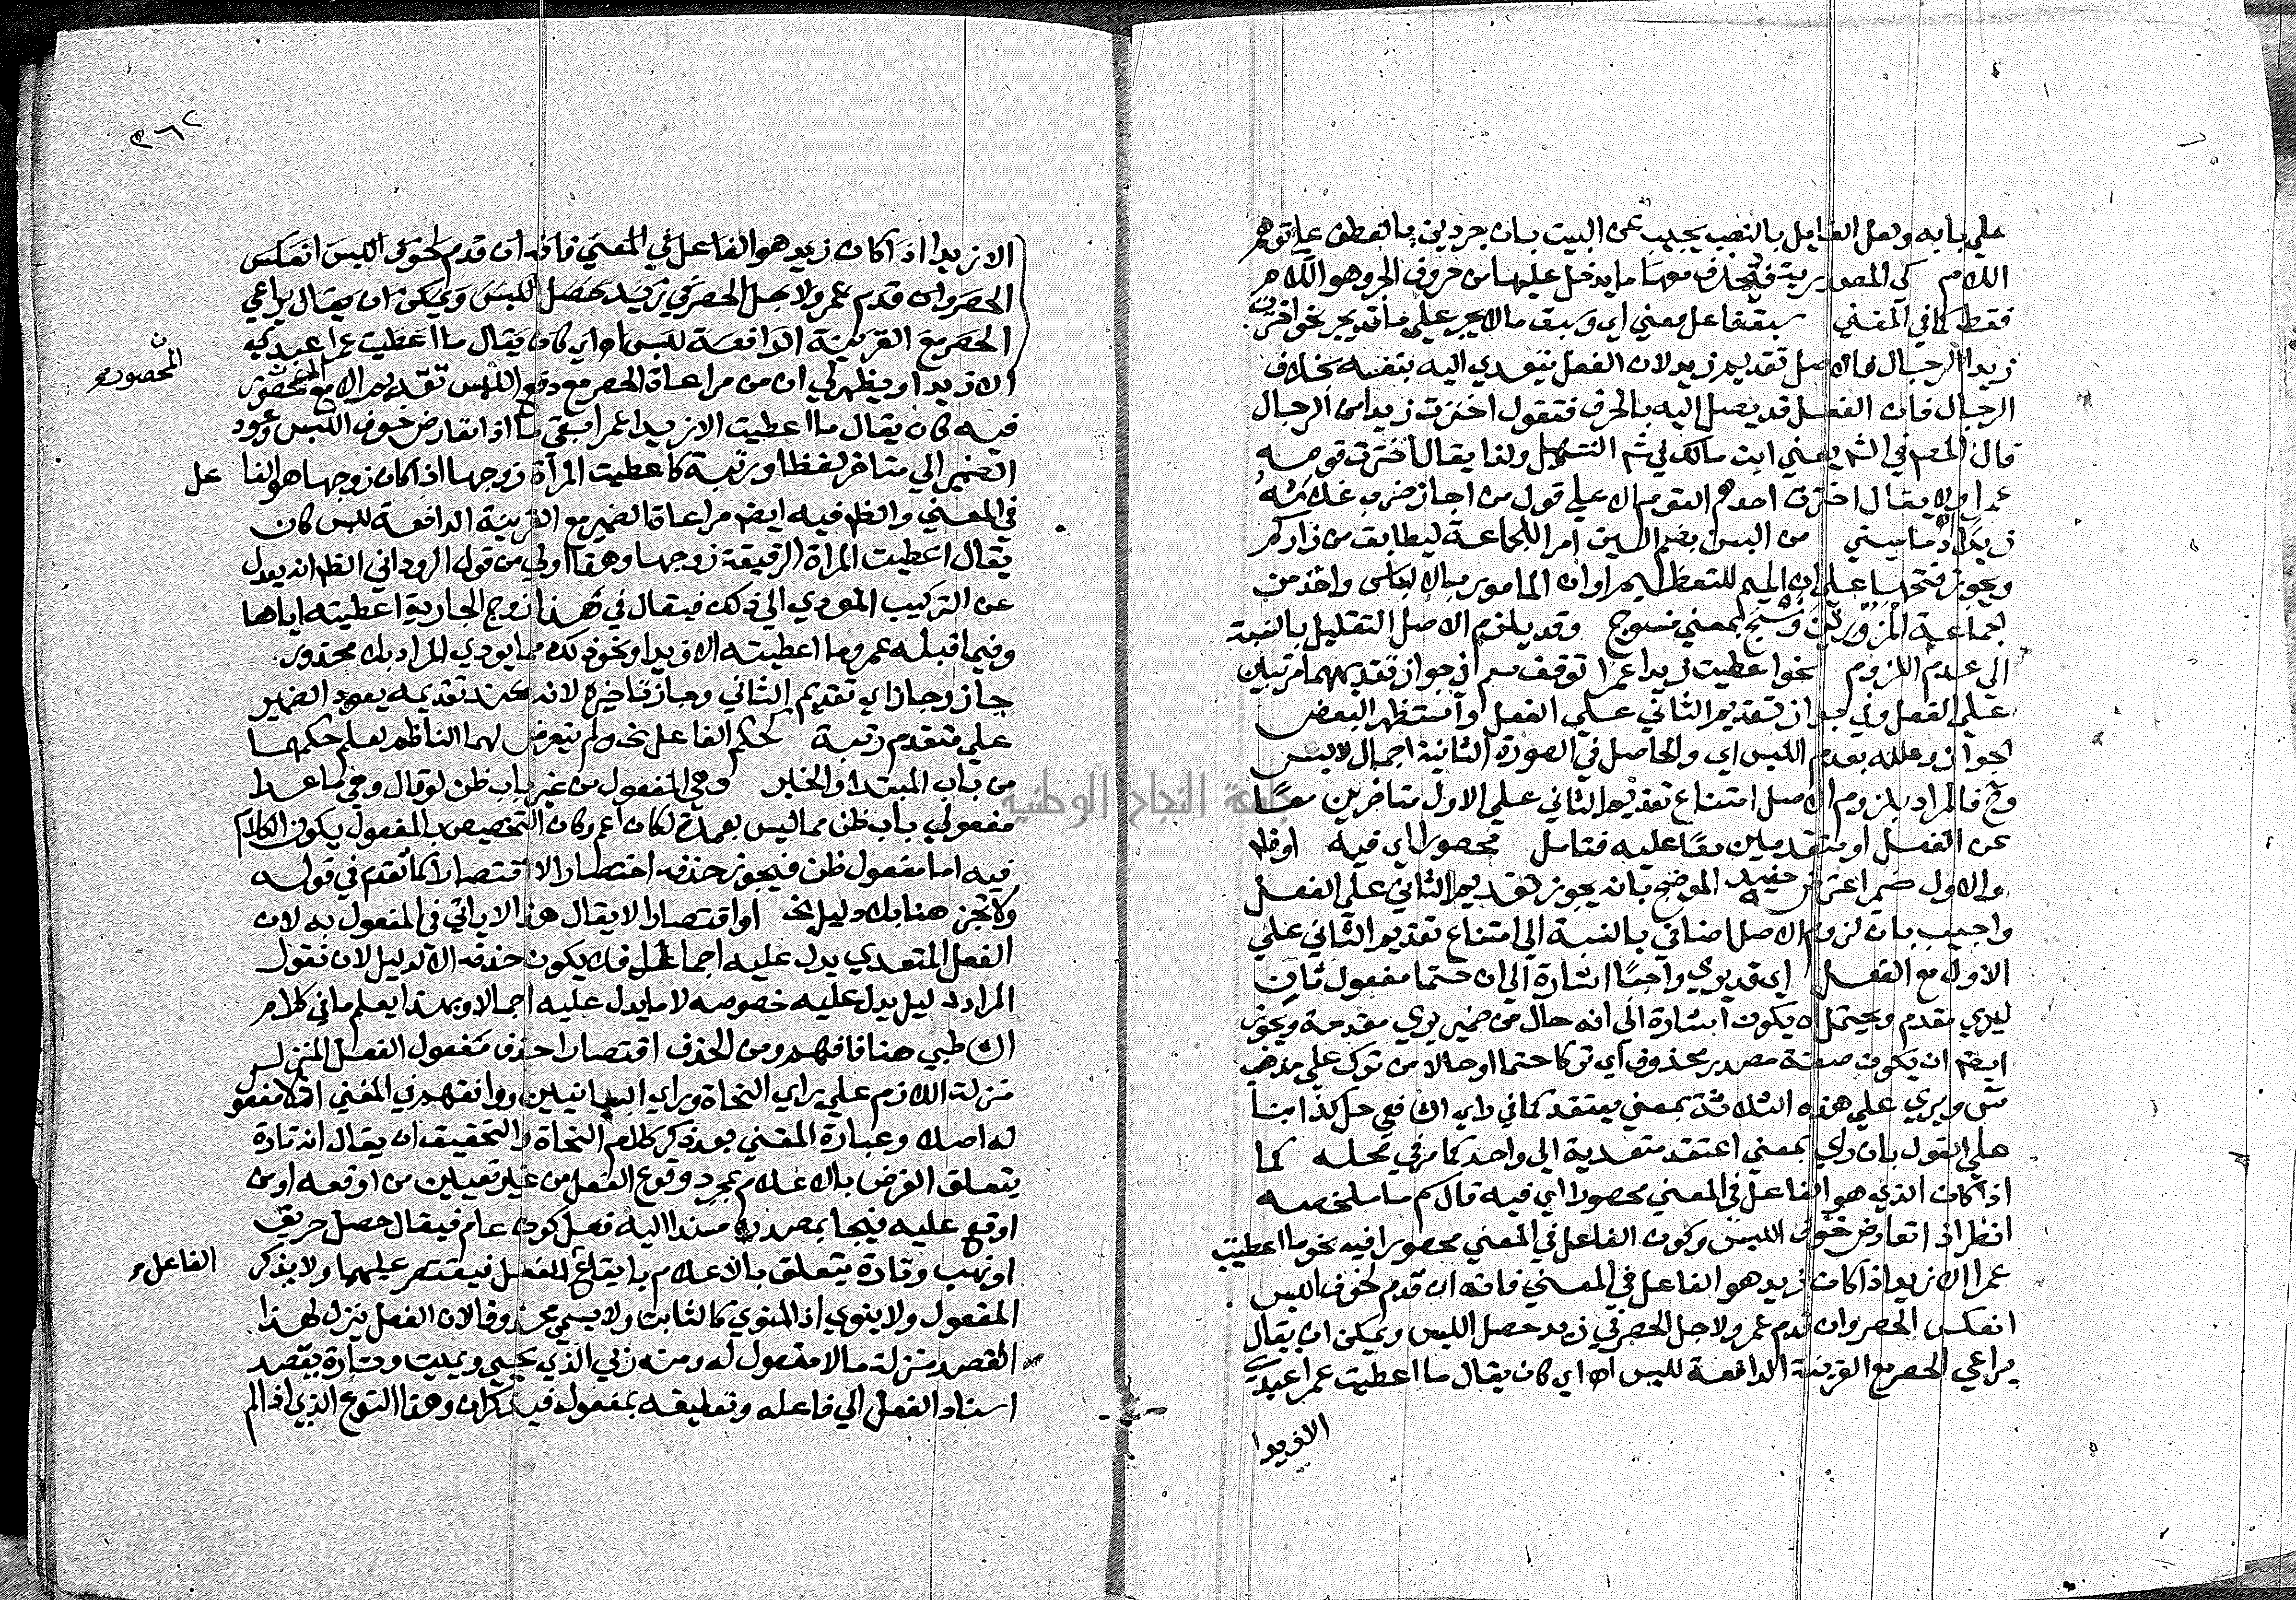 علي بابه ولعل القايل بالنصب يجيب عن البيت بان جر دين بالعطف علي توهم
اللام كي المصدرية فتحذف معها ما يدخل عليها من حروف الجر وهو اللام
فقط كما في المغني سبق فاعل معني اي وسبق ما لا يجر علي ما قد يجر نحو اخترت
زيدا الرجال فالاصل تقديم زيد لان الفعل يتعدي اليه بنفسه بخلاف
الرجال فان الفعل قد يصل اليه بالحرف فتقول اخترت زيدا من الرجال
قال المصـ في الشـ يعني ابن مالك في شـ التسهيل ولذا يقال اخترت قومه
عمرا ولا يقال اخترت احدهم القوم الا علي قول من اجاز ضرب غلامه
زيدا من البسن بضم السين امرا للجماعة ليطابق من زاركم
ويجوز فتحها علي ان الميم للتعظيم او ان المامور بالالباس واحد من
جماعة المزورين ونسج بمعني منسوج وقد يلزم الاصل التقليل بالنسبة
الي عدم اللزوم نحو اعطيت زيدا عمرا توقف سم في جواز تقديمهما مرتبين
علي الفعل وفي جواز تقديم الثاني علي الفعل واستظهر البعض
الجواز وعلله بعدم اللبس اي والحاصل في الصورة الثانية اجمال لا لبس
وح فالمراد بلزوم الاصل امتناع تقديم الثاني علي الاول متاخرين معا
عن الفعل او متقدمين معا عليه فتامل محصورا اي فيه
والاول اعترض حفيد الموضح بانه يجوز تقديم الثاني علي الفعل
واجيب بان لزوم الاصل اضافي بالنسبة الي امتناع تقديم الثاني علي
الاول مع الفعل اي قد يري واجبا اشارة الي ان حتما مفعول ثان
ليري مقدم ويحتمل ان يكون اشارة الي انه حال من ضمير يري مقدمة ويجوز
ايضا ان يكون صفة مصدر محذوف اي تركا حتما او حالا من ترك علي مذهب
س ويري علي هذه الثلاثة بمعني يعتقد كما في راي الشافعي حل كذا بنا
علي القول بان راي بمعني اعتقد متعدية الي واحد كما مر في محله كما
اذا كان الذي هو الفاعل في المعني محصورا اي فيه قال سم ما ملخصه
انظر اذا تعارض خوف اللبس وكون الفاعل في المعني محصورا فيه نحو ما اعطيت
عمرا الا زيدا اذا كان زيد هو الفاعل في المعني فانه ان قدم لخوف اللبس
انعكس الحصر وان قدم عمرو لاجل الحصر في زيد حصل اللبس ويمكن ان يقال
يراعي الحصر مع القرينة الدافعة للبس اه اي كان يقال ما اعطيت عمرا عبدي
الا زيدا
٣٦٢
الا زيدا اذا كان زيد هو الفاعل في المعني فانه ان قدم لخوف اللبس انعكس
الحصر وان قدم عمرو لاجل الحصر في زيد حصل اللبس ويمكن ان يقال يراعي
الحصر مع القرينة الدافعة للبس اه اي كان يقال ما اعطيت عمرا عبدي
الا زيدا ويظهر لي ان من مراعاة الحصر مع دفع اللبس تقديم الا مع المحصور
المحصور
فيه كان يقال ما اعطيت الا زيدا عمرا بقي ما اذا تعارض خوف اللبس وعود
الضمير الي متاخر لفظا ورتبة كاعطيت المراة زوجها اذا كان زوجها هو الفاعل
في المعني والظ فيه ايضا مراعاة الضمير مع القرينة الدافعة للبس كان
يقال اعطيت المراة الرقيقة زوجها وهذا اولي من قول الروداني الظ انه يعدل
عن التركيب المودي الي ذلك فيقال في هذا زوج الجارية اعطيته اياها
وفيما قبله عمرو ما اعطيته الا زيدا ونحو ذلك مما يودي المراد بلا محذور
جاز وجاز اي تقديم الثاني وجاز تاخيره لانه عند تقديمه يعود الضمير
علي متقدم رتبة كحكم الفاعل نحو ولم يتعرض لهما الناظم لعلم حكمها
من باب المبتدا والخبر وهي المفعول من غير باب ظن لو قال وهي ما عدا
مفعولي باب ظن مما ليس بعمدة لكان اعم وكان التخصيص بالمفعول يكون الكلام
فيه اما مفعول ظن فيجوز حذفه اختصارا لا اقتصارا كما تقدم في قوله
ولا تجز هنا بلا دليل نحو او اقتصارا لا يقال هذا لا ياتي في المفعول به لان
الفعل المتعدي يدل عليه اجمالا فلا يكون حذفه الا لدليل لان نقول
المراد دليل يدل عليه خصوصه لا ما يدل عليه اجمالا وبهذا يعلم ما في كلام
الشاطبي هنا فافهم ومن الحذف اقتصارا حذف مفعول الفعل المنزل
منزلة اللازم علي راي النحاة وراي البيانيين ووافقهم في المغني انه لا مفعول
له اصلا وعبارة المغني بعد ذكر كلام النحاة والتحقيق ان يقال انه تارة
يتعلق الغرض بالاعلام بمجرد وقوع الفعل من غير تعيين من اوقعه او من
اوقع عليه فيجا بمصدره مسندا اليه فعل كون عام فيقال حصل حريق
او نهب وتارة يتعلق بالاعلام بايقاع الفاعل الفعل فيقتصر عليهما ولا يذكر
المفعول ولا ينوي اذ المنوي كالثابت ولا يسمي محذوفا لان الفعل ينزل لهذا
القصد منزلة ما لا مفعول له ومنه ربي الذي يحيي ويميت وتارة يقصد
اسناد الفعل الي فاعله وتعليقه بمفعوله فيذكران وهذا النوع الذي اذا لم
جامعة النجاح الوطنية